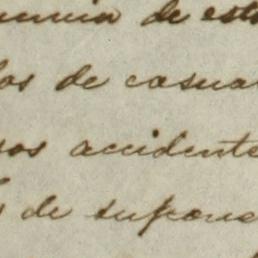 de est
os de casua
sos accidente
de supone